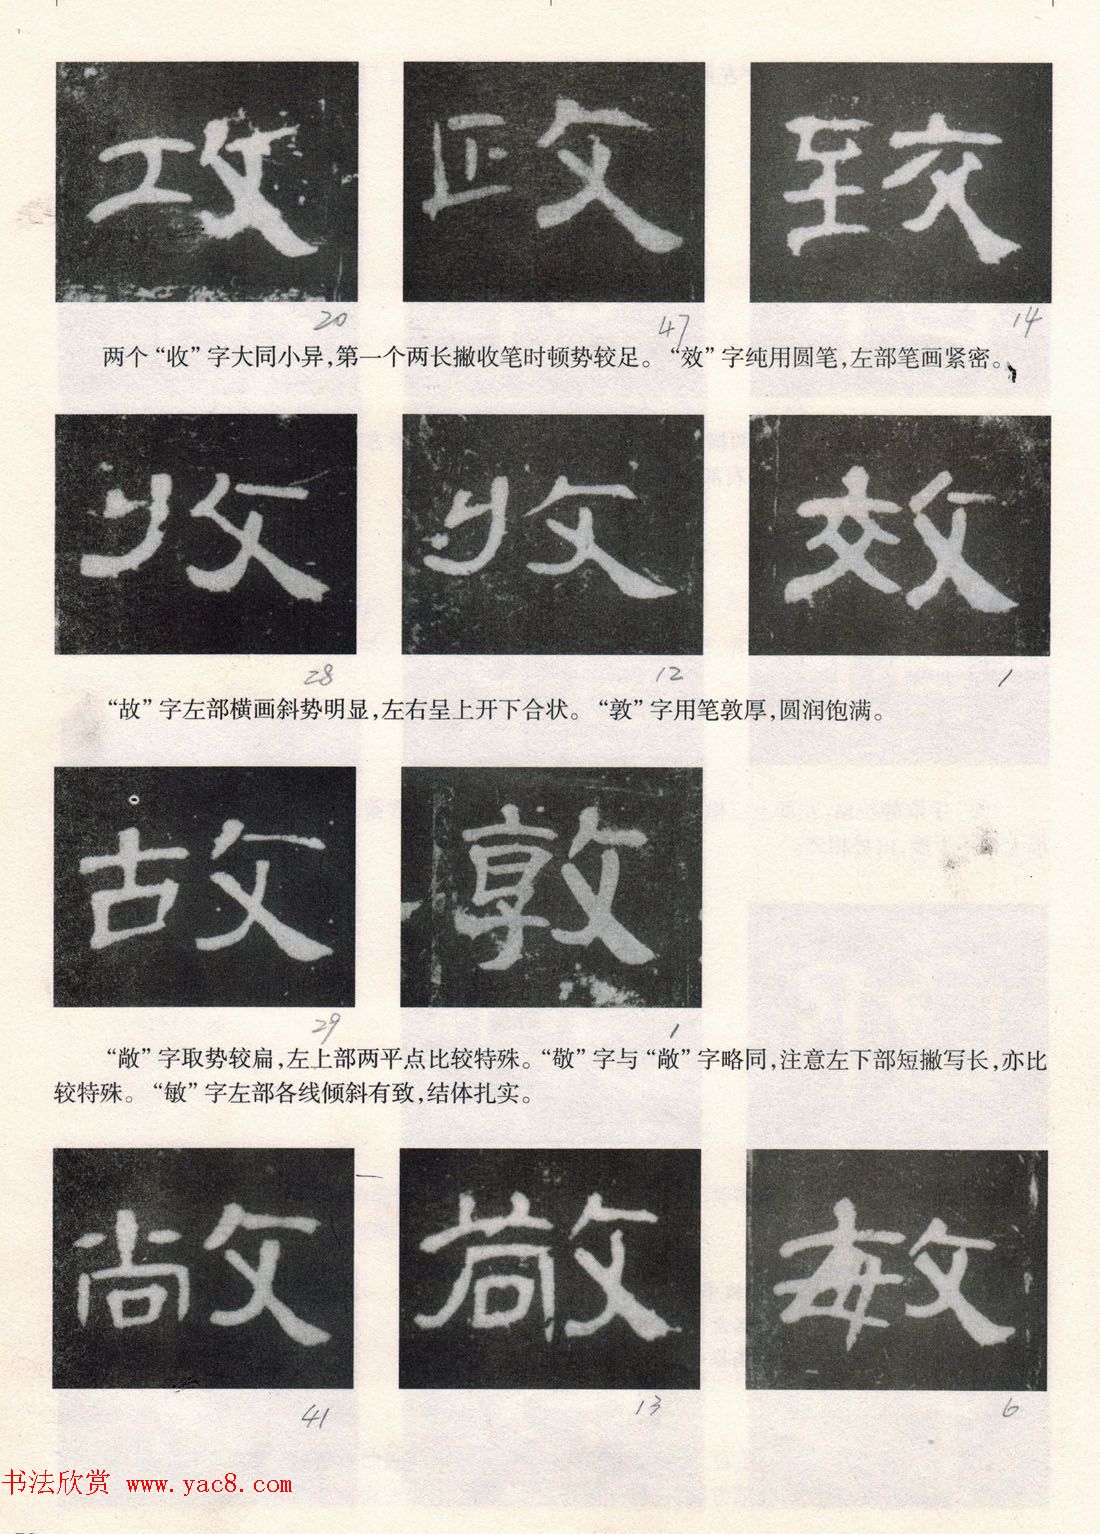 攻 政 致
20 47 14
两个“收”字大同小异，第一个两长撇收笔时顿势较足。“效”字纯用圆笔，左部笔画紧密。
收 收 效
28 12 1
“故”字左部横画斜势明显，左右呈上开下合状。“敦”字用笔敦厚，圆润饱满。
故 敦
29 1
“敞”字取势较扁，左上部两平点比较特殊。“敬”字与“敞”字略同，注意左下部短撇写长，亦比
较特殊。“敏”字左部各线倾斜有致，结体扎实。
敞 敬 敏
41 13 6
书法欣赏 www.yac8.com